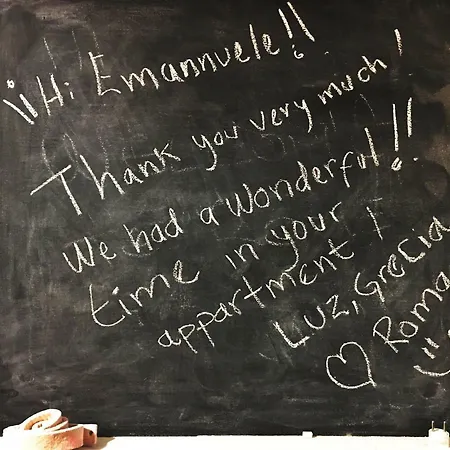 ¡¡Hi Emannuele!!
Thank you very much!
We had a Wonderful!!
time in your
appartment!
Luz, Grecia
♡ Roma